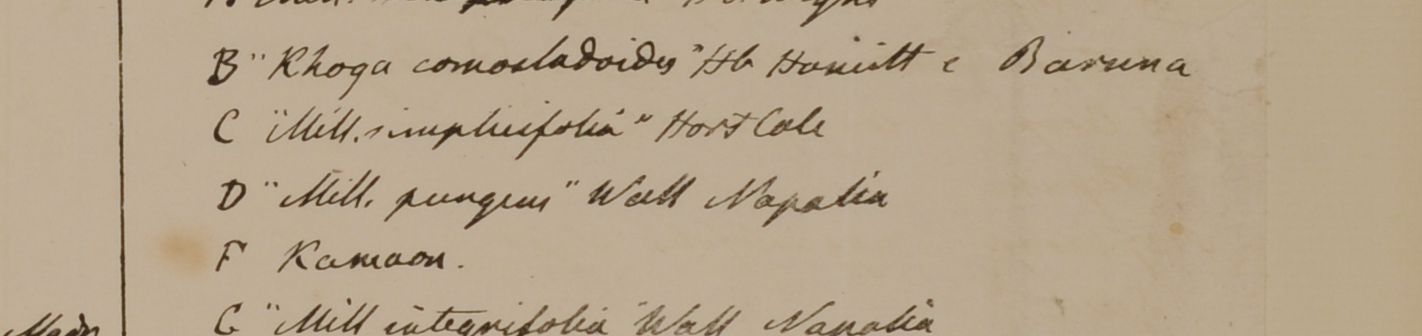 B "Rhoga comocladoides" Hb Hamilt e Baruna
C "Mill. simplicifolia" Hort Calc
D "Mill. pungens" Wall Napalia
F Kamaon.
G "Mill integrifolia Wall Napalia